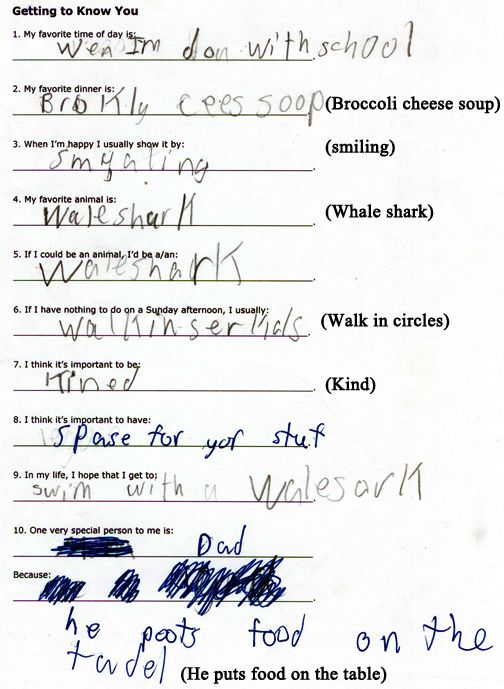 Getting to Know You
1. My favorite time of day is:
wen Im don with school
2. My favorite dinner is:
Brokly cees soop (Broccoli cheese soup)
3. When I'm happy I usually show it by:
(smiling)
smyaling
4. My favorite animal is:
waleshark (Whale shark)
5. If I could be an animal, I'd be a/an:
waleshark
6. If I have nothing to do on a Sunday afternoon, I usually:
walkin serkids (Walk in circles)
7. I think it's important to be:
kined (Kind)
8. I think it's important to have:
spase for yor stuf
9. In my life, I hope that I get to:
swim with a walesark
10. One very special person to me is:
Dad
Because:
he poots food on the
tadel (He puts food on the table)